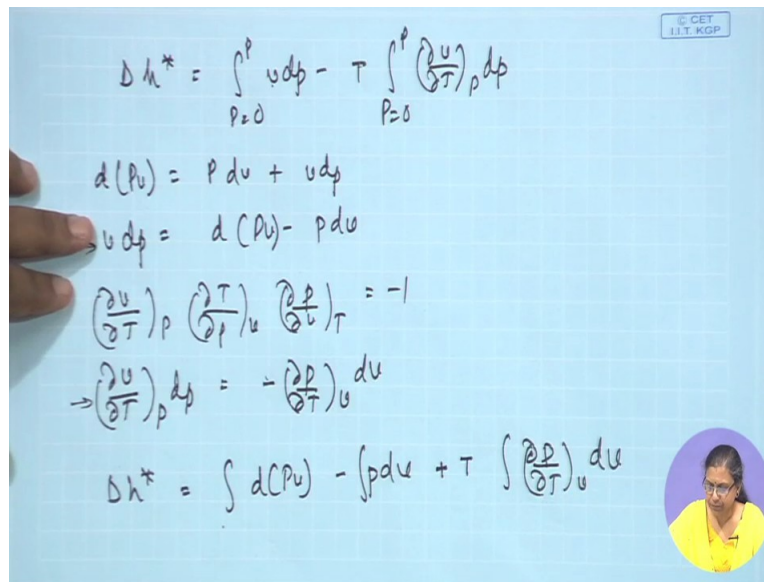 © CET
I.I.T. KGP
Δh* = ∫_{P=0}^{P} v dp - T ∫_{P=0}^{P} (∂v/∂T)_P dp
d(Pv) = P dv + v dp
→ v dp = d(Pv) - p dv
(∂v/∂T)_P (∂T/∂p)_v (∂p/∂v)_T = -1
→ (∂v/∂T)_P dp = -(∂p/∂T)_v dv
Δh* = ∫ d(Pv) - ∫p dv + T ∫ (∂p/∂T)_v dv